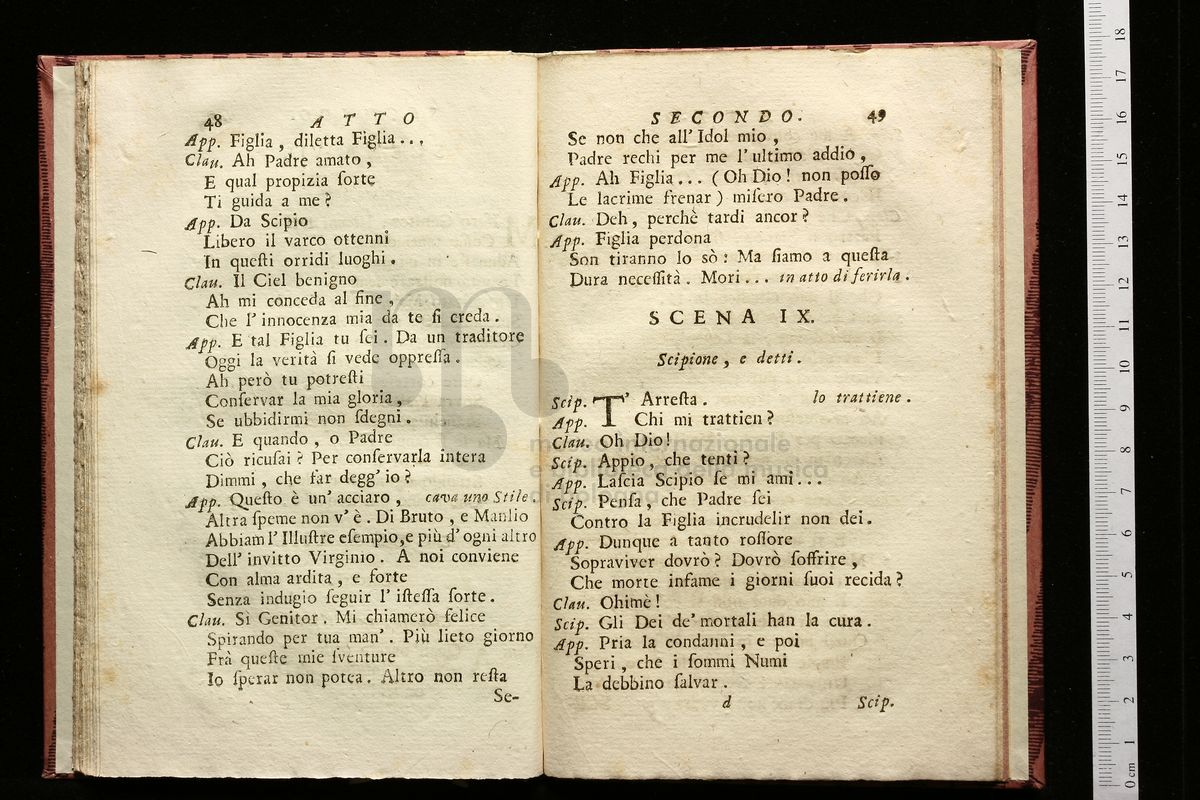 48 ATTO
App. Figlia, diletta Figlia...
Clau. Ah Padre amato,
E qual propizia ſorte
Ti guida a me?
App. Da Scipio
Libero il varco ottenni
In queſti orridi luoghi.
Clau. Il Ciel benigno
Ah mi conceda al fine,
Che l' innocenza mia da te ſi creda.
App. E tal Figlia tu ſei. Da un traditore
Oggi la verità ſi vede oppreſſa.
Ah però tu potreſti
Conſervar la mia gloria,
Se ubbidirmi non ſdegni.
Clau. E quando, o Padre
Ciò ricuſai? Per conſervarla intera
Dimmi, che far degg' io?
App. Queſto è un' acciaro, cava uno Stile.
Altra ſpeme non v' è. Di Bruto, e Manlio
Abbiam l' Illuſtre eſempio, e più d' ogni altro
Dell' invitto Virginio. A noi conviene
Con alma ardita, e forte
Senza indugio ſeguir l' iſteſſa ſorte.
Clau. Sì Genitor. Mi chiamerò felice
Spirando per tua man'. Più lieto giorno
Frà queſte mie ſventure
Io ſperar non potea. Altro non reſta
Se-
SECONDO. 49
Se non che all' Idol mio,
Padre rechi per me l' ultimo addio,
App. Ah Figlia... (Oh Dio! non poſſo
Le lacrime frenar) miſero Padre.
Clau. Deh, perchè tardi ancor?
App. Figlia perdona
Son tiranno lo sò: Ma ſiamo a queſta
Dura neceſſità. Mori... in atto di ferirla.
SCENA IX.
Scipione, e detti.
Scip. T' Arreſta. lo trattiene.
App. Chi mi trattien?
Clau. Oh Dio!
Scip. Appio, che tenti?
App. Laſcia Scipio ſe mi ami...
Scip. Penſa, che Padre ſei
Contro la Figlia incrudelir non dei.
App. Dunque a tanto roſſore
Sopraviver dovrò? Dovrò ſoffrire,
Che morte infame i giorni ſuoi recida?
Clau. Ohimè!
Scip. Gli Dei de' mortali han la cura.
App. Pria la condanni, e poi
Speri, che i ſommi Numi
La debbino ſalvar.
d Scip.
museo internazionale
e biblioteca della musica
di bologna
0 cm 1 2 3 4 5 6 7 8 9 10 11 12 13 14 15 16 17 18